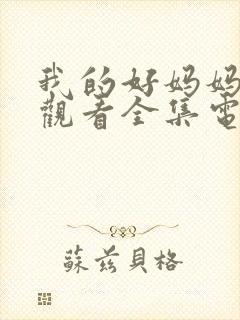 我的好妈妈
觀看全集電
蘇茲貝格